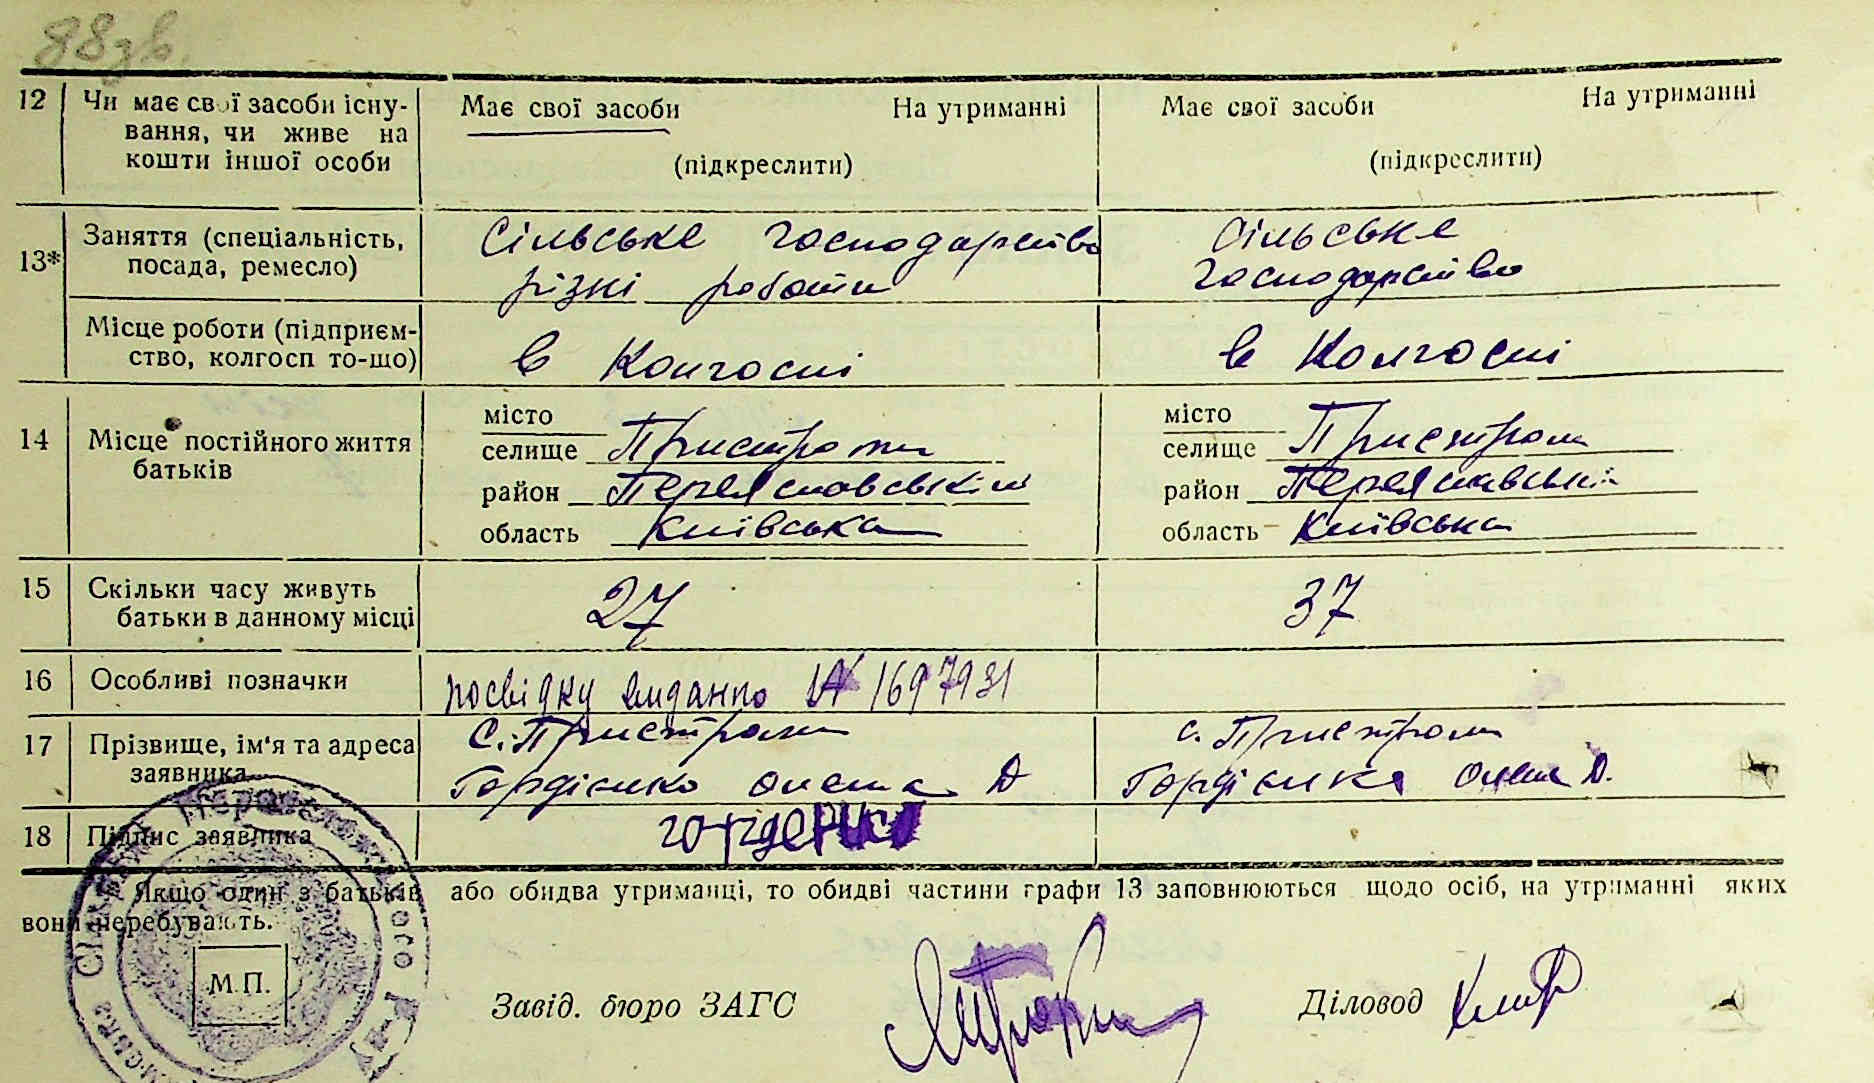 88 зв.
12 Чи має свої засоби існу-
вання, чи живе на
кошти іншої особи
Має свої засоби На утриманні
(підкреслити)
Має свої засоби На утриманні
(підкреслити)
13* Заняття (спеціальність,
посада, ремесло)
Сільське господарство
різні роботи
Сільське
господарство
Місце роботи (підприєм-
ство, колгосп то-що)
в Колгоспі
в Колгоспі
14 Місце постійного життя
батьків
місто
селище Пристроми
район Переяславський
область Київська
місто
селище Пристроми
район Переяславський
область Київська
15 Скільки часу живуть
батьки в данному місці
27
37
16 Особливі позначки
посвідку видано № 1697931
17 Прізвище, ім'я та адреса
заявника
с. Пристроми
Гордієнко Олекса Д
с. Пристроми
Гордієнко Олекса Д.
18 Підпис заявника
гордейко
Якщо один з батьків або обидва утриманці, то обидві частини графи 13 заповнюються щодо осіб, на утриманні яких
вони перебувають.
М.П.
Завід. бюро ЗАГС
Діловод